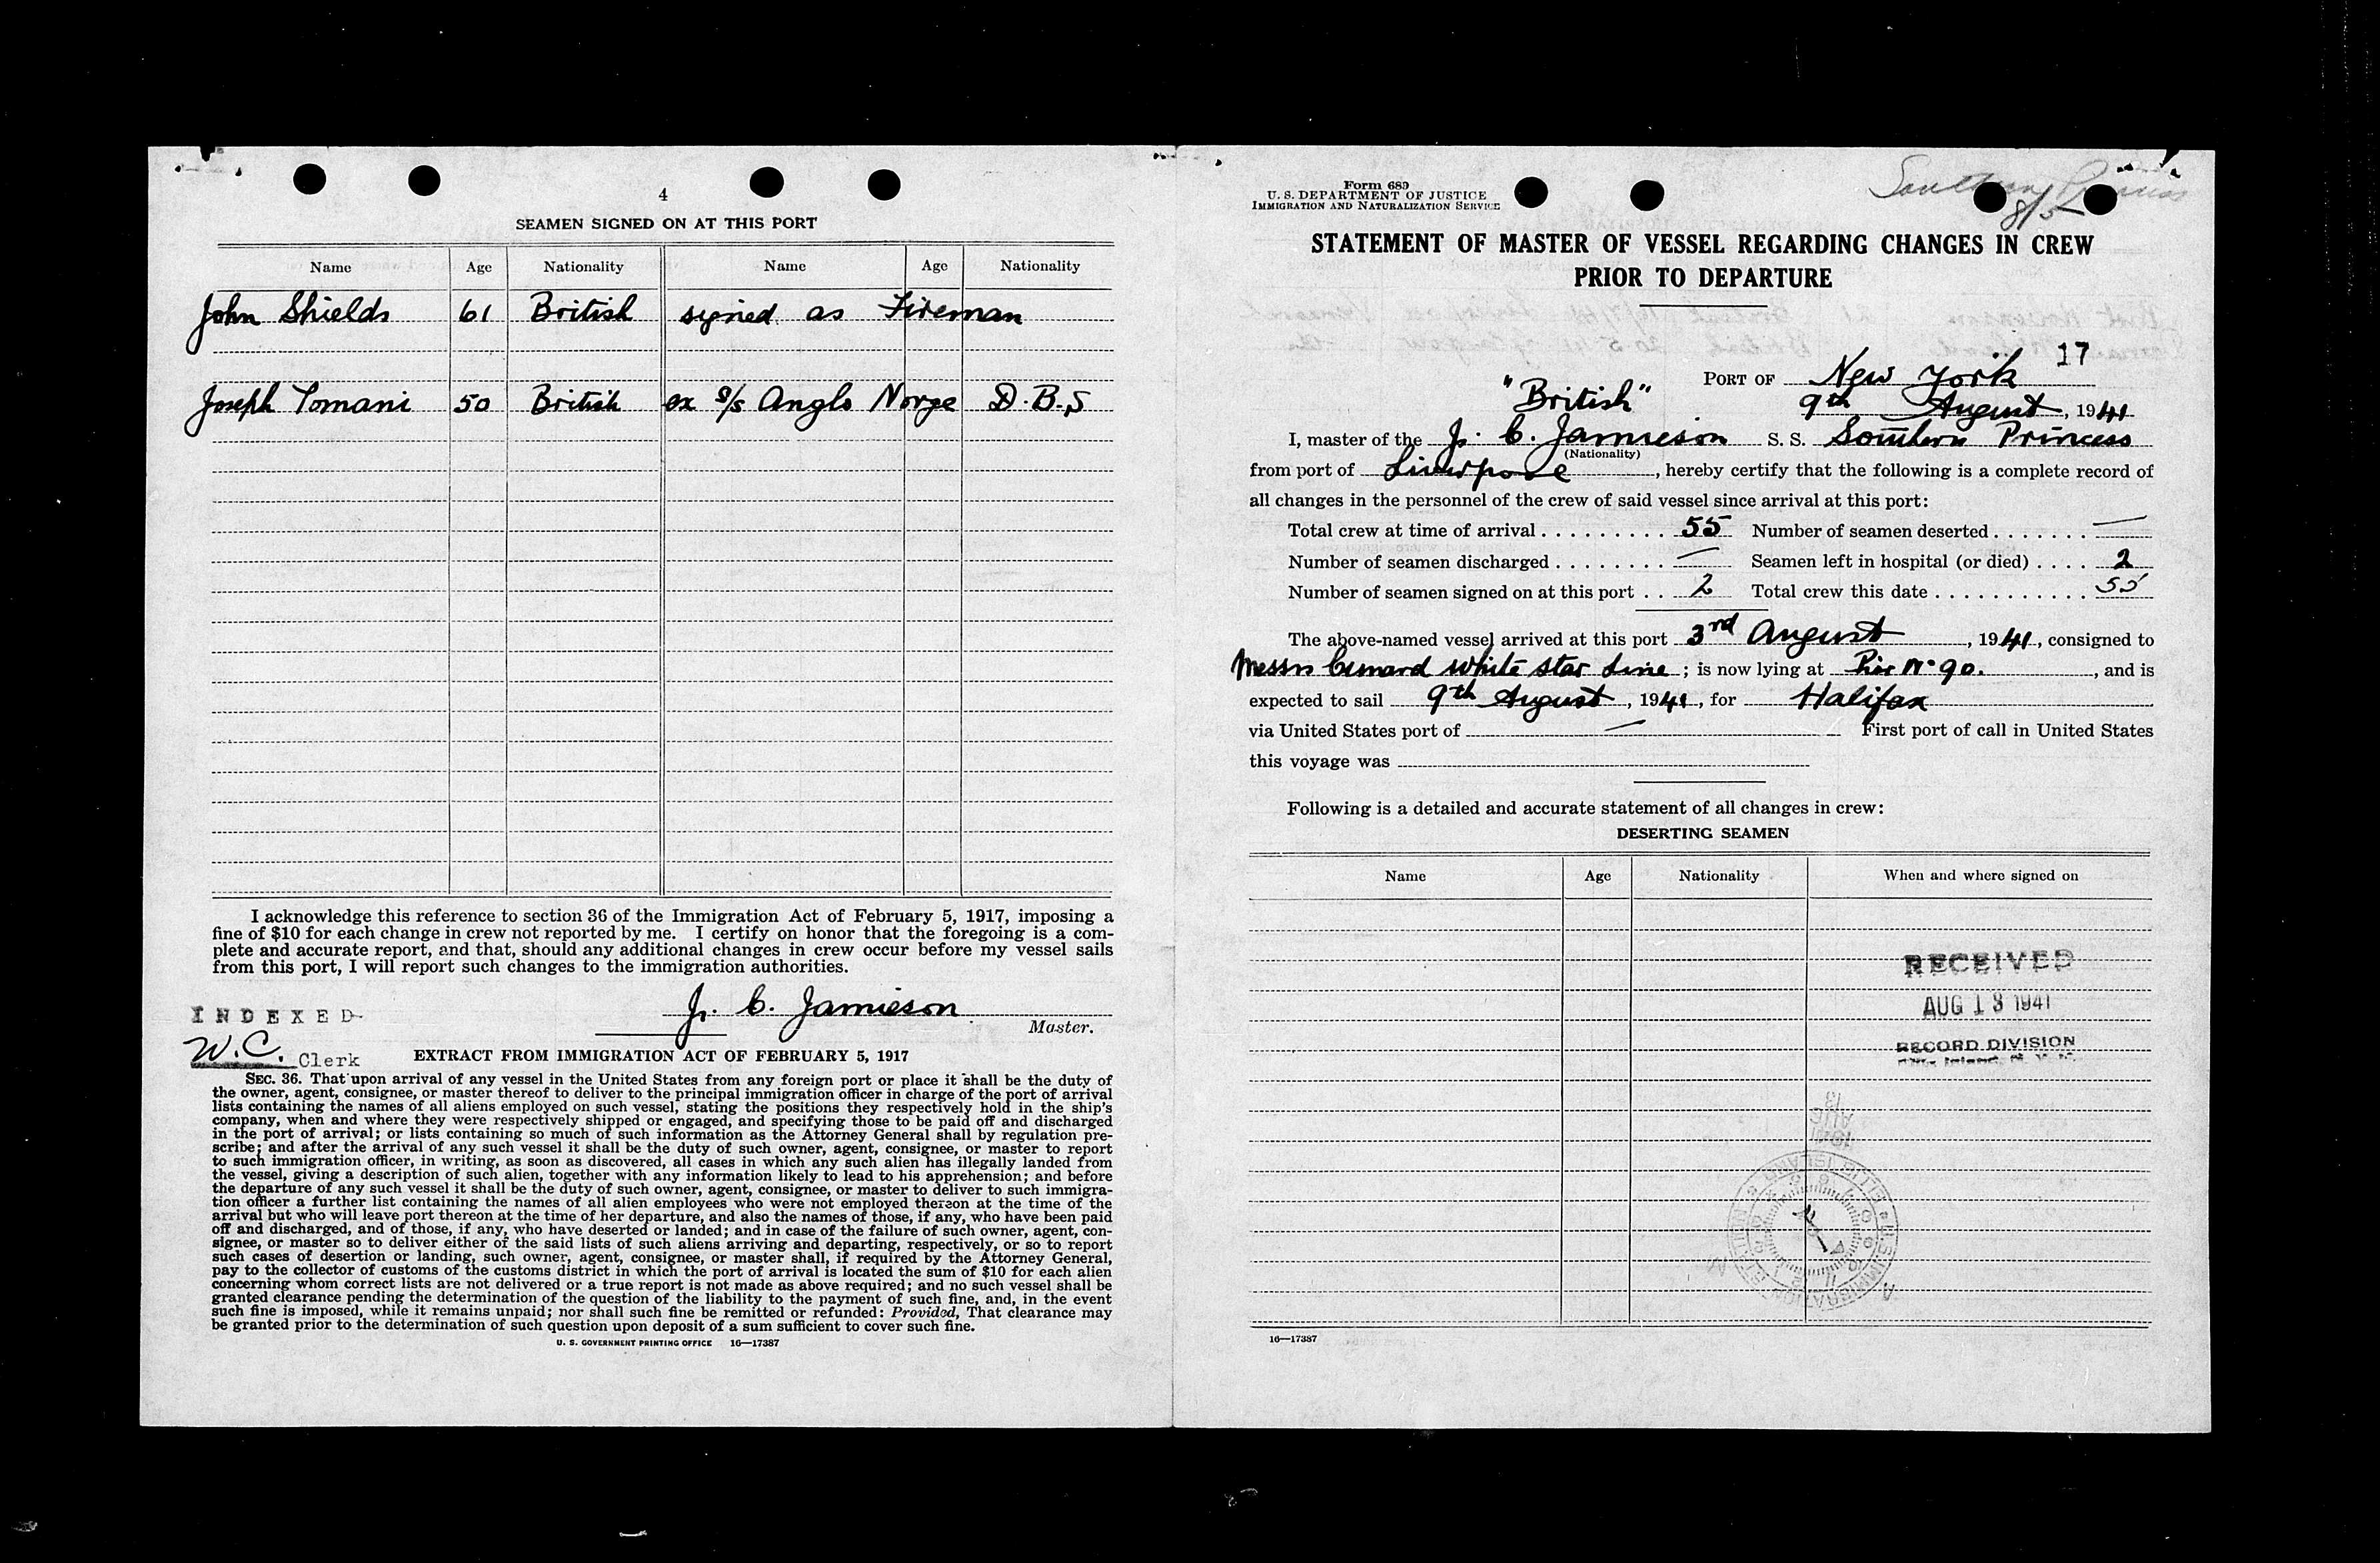 4
SEAMEN SIGNED ON AT THIS PORT
Name Age Nationality Name Age Nationality
John Shields 61 British signed as Fireman
Joseph Tomani 50 British ex s/s Anglo Norge D.B.S
I acknowledge this reference to section 36 of the Immigration Act of February 5, 1917, imposing a
fine of $10 for each change in crew not reported by me. I certify on honor that the foregoing is a com-
plete and accurate report, and that, should any additional changes in crew occur before my vessel sails
from this port, I will report such changes to the immigration authorities.
J. C. Jamieson
Master.
INDEXED
W.C. Clerk
EXTRACT FROM IMMIGRATION ACT OF FEBRUARY 5, 1917
SEC. 36. That upon arrival of any vessel in the United States from any foreign port or place it shall be the duty of
the owner, agent, consignee, or master thereof to deliver to the principal immigration officer in charge of the port of arrival
lists containing the names of all aliens employed on such vessel, stating the positions they respectively hold in the ship's
company, when and where they were respectively shipped or engaged, and specifying those to be paid off and discharged
in the port of arrival; or lists containing so much of such information as the Attorney General shall by regulation pre-
scribe; and after the arrival of any such vessel it shall be the duty of such owner, agent, consignee, or master to report
to such immigration officer, in writing, as soon as discovered, all cases in which any such alien has illegally landed from
the vessel, giving a description of such alien, together with any information likely to lead to his apprehension; and before
the departure of any such vessel it shall be the duty of such owner, agent, consignee, or master to deliver to such immigra-
tion officer a further list containing the names of all alien employees who were not employed thereon at the time of the
arrival but who will leave port thereon at the time of her departure, and also the names of those, if any, who have been paid
off and discharged, and of those, if any, who have deserted or landed; and in case of the failure of such owner, agent, con-
signee, or master so to deliver either of the said lists of such aliens arriving and departing, respectively, or so to report
such cases of desertion or landing, such owner, agent, consignee, or master shall, if required by the Attorney General,
pay to the collector of customs of the customs district in which the port of arrival is located the sum of $10 for each alien
concerning whom correct lists are not delivered or a true report is not made as above required; and no such vessel shall be
granted clearance pending the determination of the question of the liability to the payment of such fine, and, in the event
such fine is imposed, while it remains unpaid; nor shall such fine be remitted or refunded: Provided, That clearance may
be granted prior to the determination of such question upon deposit of a sum sufficient to cover such fine.
U. S. GOVERNMENT PRINTING OFFICE 16—17387
Form 689
U. S. DEPARTMENT OF JUSTICE
IMMIGRATION AND NATURALIZATION SERVICE
Southern Princess
8/5
STATEMENT OF MASTER OF VESSEL REGARDING CHANGES IN CREW
PRIOR TO DEPARTURE
17
PORT OF New York
"British" 9th August, 1941
I, master of the J. C. Jamieson S. S. Southern Princess
(Nationality)
from port of Liverpool, hereby certify that the following is a complete record of
all changes in the personnel of the crew of said vessel since arrival at this port:
Total crew at time of arrival 55 Number of seamen deserted —
Number of seamen discharged — Seamen left in hospital (or died) 2
Number of seamen signed on at this port 2 Total crew this date 55
The above-named vessel arrived at this port 3rd August, 1941, consigned to
Messrs Cunard White Star Line; is now lying at Pier No 90., and is
expected to sail 9th August, 1941, for Halifax
via United States port of — First port of call in United States
this voyage was
Following is a detailed and accurate statement of all changes in crew:
DESERTING SEAMEN
Name Age Nationality When and where signed on
RECEIVED
AUG 13 1941
RECORD DIVISION
16—17387